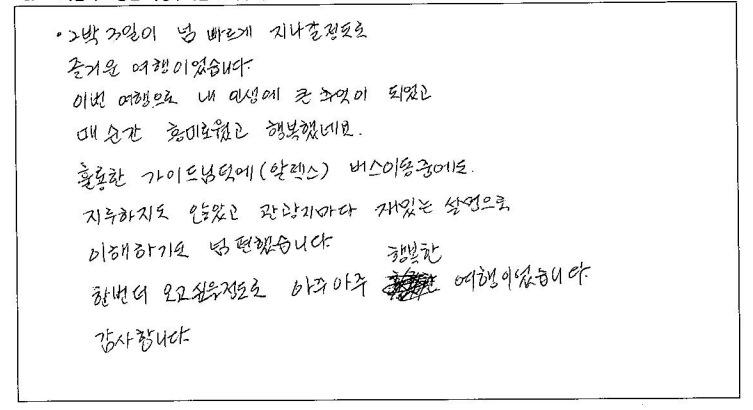 · 2박 3일이 넘 빠르게 지나갈정도로
즐거운 여행이었습니다.
이번 여행으로 내 인생에 큰 추억이 되었고
매 순간 흥미로웠고 행복했네요.
훌륭한 가이드님덕에(알렉스) 버스이동중에도.
지루하지도 않았고 관광지마다 재밌는 설명으로
이해하기도 넘 편했습니다.
한번더 오고싶을정도로 아주아주 행복한 여행이었습니다
감사합니다.